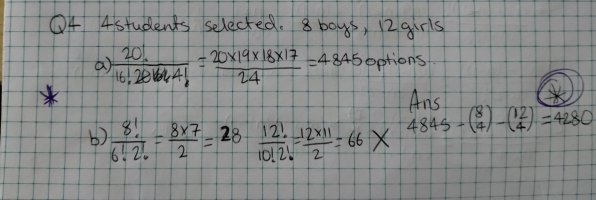 Q4 4 students selected. 8 boys, 12 girls
a) 20!/16! 4! = 20x19x18x17/24 = 4845 options.
* Ans *
b) 8!/6! 2! = 8x7/2 = 28 12!/10! 2! = 12x11/2 = 66 X 4845 - (8 4) - (12 4) = 4280